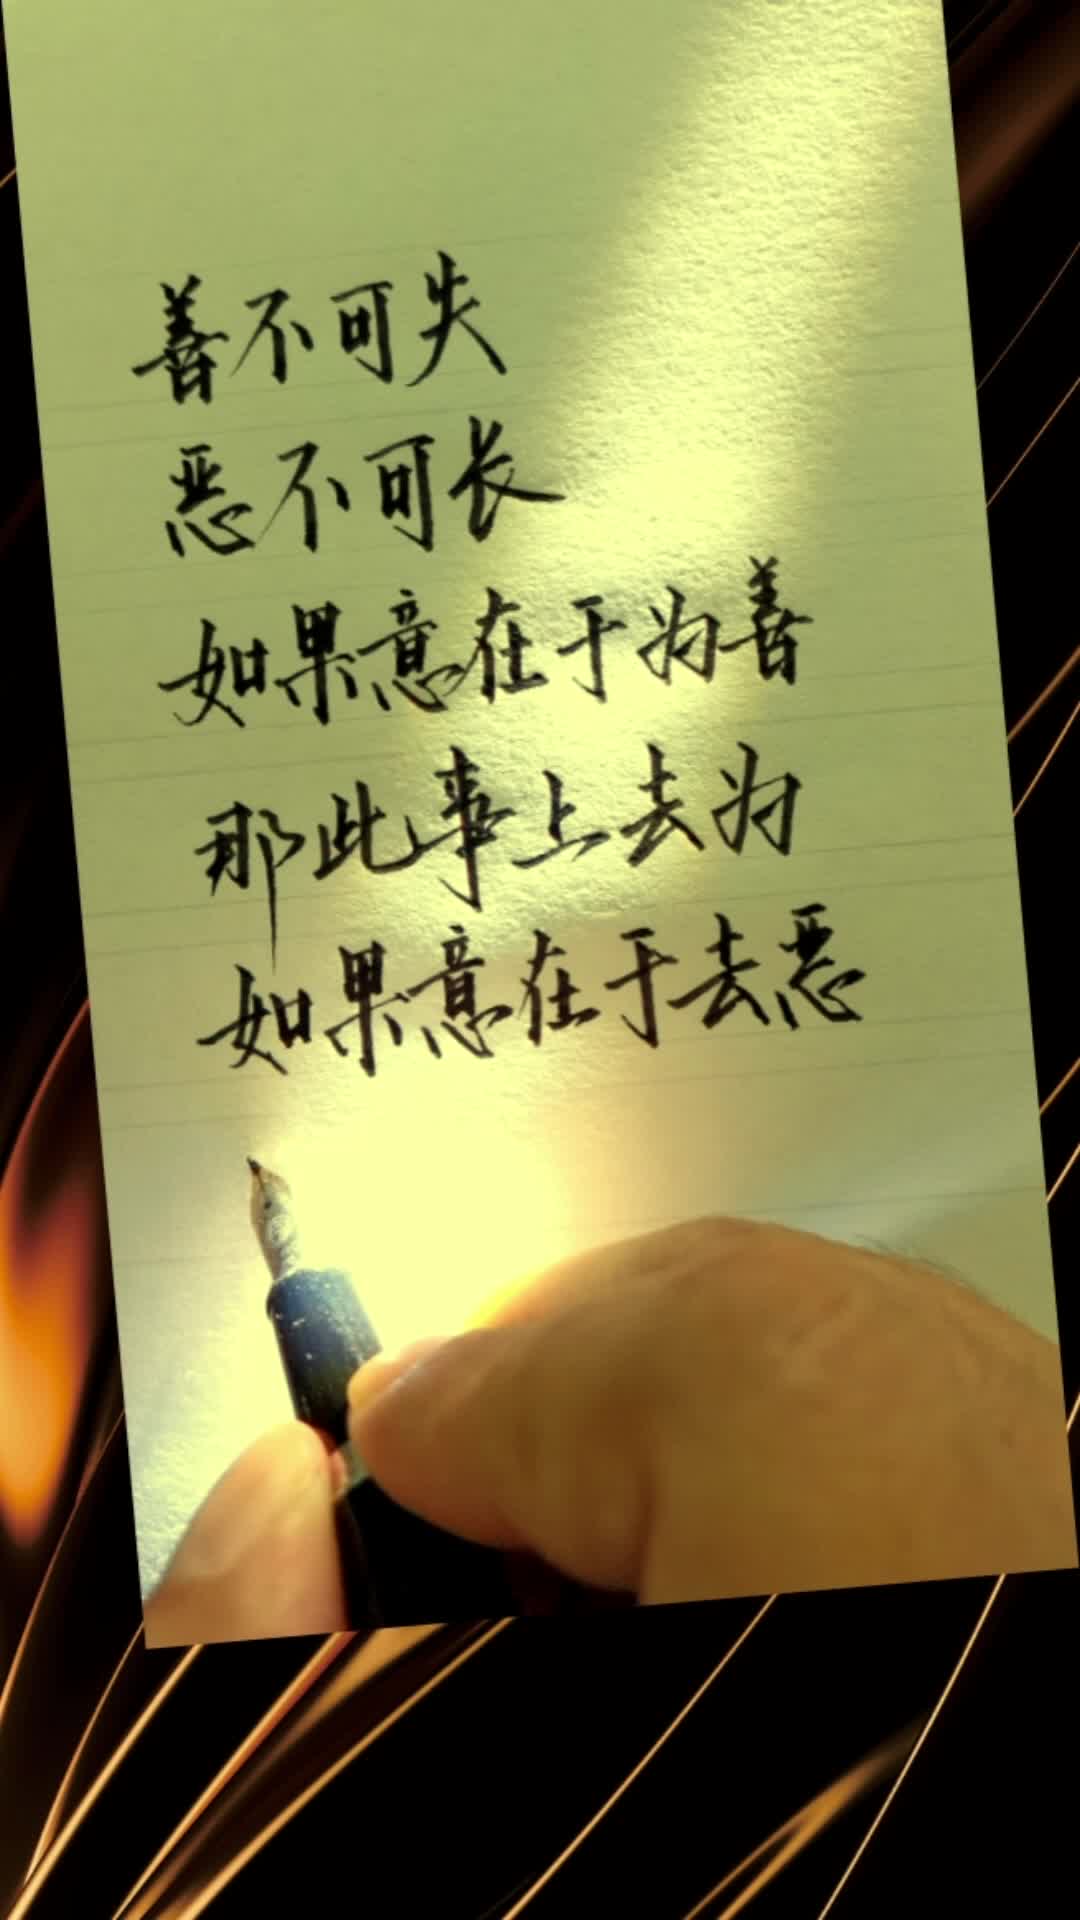 善不可失
恶不可长
如果意在于为善
那此事上去为
如果意在于去恶